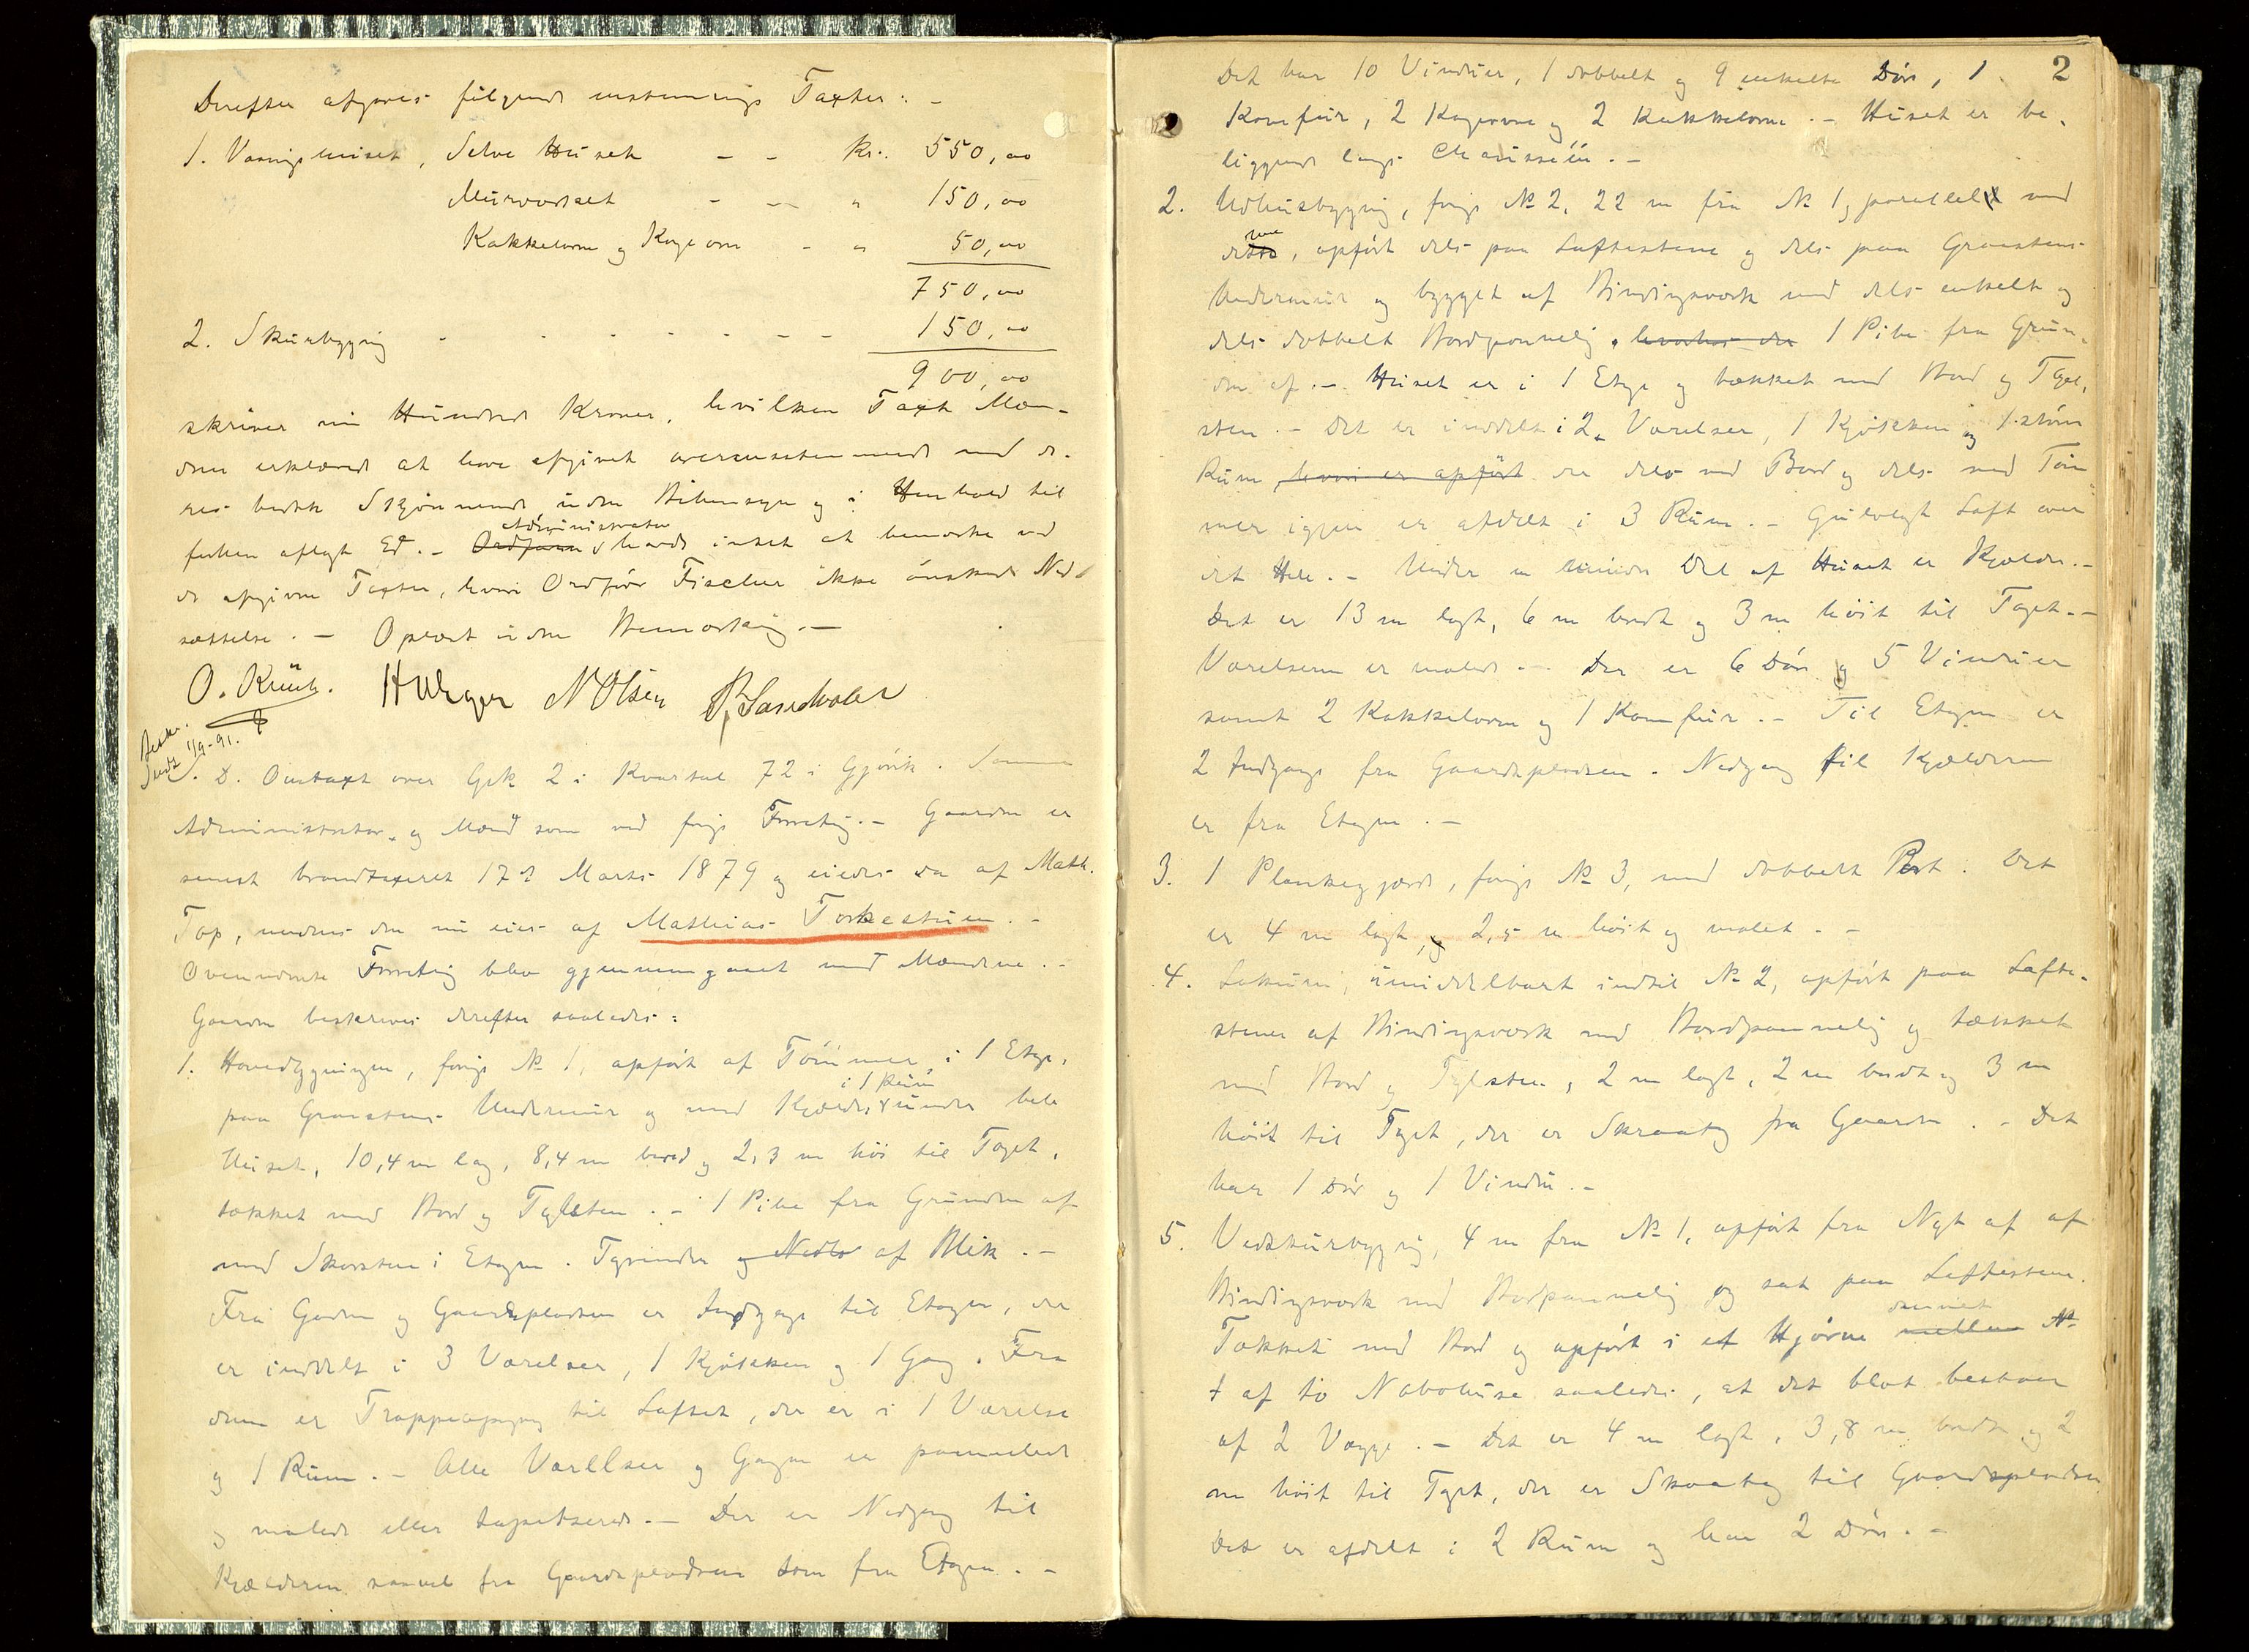 Derefter afgaves følgende enstemmige Taxter: -
1. Vaaningshuset, Selve Huset - - Kr. 550,00
Murværket - - " 150,00
Kakkelovne og Kogeovn - " 50,00
750,00
2. Skurbygning - - - - - - - 150,00
900,00
skriver ni Hundrede Kroner, hvilken Taxt Mæn-
dene erklærede at have afgivet overensstemmende med de-
res bedste Skjønnende uden Bihensyn og i Henhold til
forhen aflagt Ed. - Ordføren Administrator havde intet at bemærke ved
de afgivne Taxter, hvori Ordfører Fischer ikke ønskede Ned-
sættelse. - Oplæst uden Bemærkning. -
O. Krüch. H Weger N Olsen P. Sandvolden
Besk.
Sendt 1/9-91.
S. D. Omtaxt over Gek 2 i Kvartal 72 i Gjøvik. Samme
Administrator og Mænd som ved forrige Forretning. - Gaarden er
senest brandtaxeret 17de Marts 1879 og eiedes da af Math.
Top, medens den nu eies af Mathias Torkestuen. -
Ovennævnte Forretning blev gjennemgaaet med Mændene. -
Gaarden beskrives derefter saaledes:
1. Hovedbygningen, forrige № 1, opført af Tømmer i 1 Etage,
paa Graastens Undermur og med Kjælder i 1 Rum under hele
Huset, 10,4 m lang, 8,4 m bred og 2,3 m høi til Taget,
tækket med Bord og Taglsten. - 1 Pibe fra Grunden af
med Skorsten i Etagen. Tagrender og Nedlø af Blik. -
Fra Gaden og Gaardspladsen er Indgange til Etagen, der
er inddelt i 3 Værelser, 1 Kjøkken og 1 Gang. Fra
denne er Trappeopgang til Loftet, der er i 1 Værelse
og 1 Rum. - Alle Værelser og Gangen er pannelede
og malede eller tapetserede. - Der er Nedgang til
Kjælderen saavel fra Gaardspladsen som fra Etagen. -
2
Det har 10 Vinduer, 1 dobbelt og 9 enkelte Døre, 1
Komfur, 2 Kogeovne og 2 Kakkelovne. - Huset er be-
liggende langs Chausséen. -
2. Udhusbygning, forrige № 2, 22 m fra № 1, parallel med
dette denne, opført dels paa Løftestene og dels paa Graastens-
Undermur og bygget af Bindingsværk med dels enkelt og
dels dobbelt Bordpannelig, hvorhos der 1 Pibe fra Grun-
den af. - Huset er i 1 Etage og tækket med Bord og Tagl-
sten. - Det er inddelt i 2 Værelser, 1 Kjøkken og 1 større
Rum, hvori er opført der dels ved Bord og dels ved Tøm-
mer igjen er afdelt i 3 Rum. - Gulvlagt Loft over
det Hele. - Under en mindre Del af Huset er Kjælder. -
Det er 13 m langt, 6 m bredt og 3 m høit til Taget. -
Værelserne er malede. - Der er 6 Døre og 5 Vinduer
samt 2 Kakkelovne og 1 Komfur. - Til Etagen er
2 Indgange fra Gaardspladsen. Nedgang til Kjælderen
er fra Etagen. -
3. 1 Plankegjærde, forrige № 3, med dobbelt Port. Det
er 4 m langt, og 2,5 m høit og malet. -
4. Lokum, umiddelbart indtil № 2, opført paa Løfte-
stener af Bindingsværk med Bordpannelig og tækket
med Bord og Taglsten, 2 m langt, 2 m bredt og 3 m
høit til Taget, der er Skraatag fra Gaarden. - Det
har 1 Dør og 1 Vindu. -
5. Vedskurbygning, 4 m fra № 1, opført fra Nyt af af
Bindingsværk med Bordpannelig og sat paa Løftestene.
Tækket med Bord og opført i et Hjørne mellem dannet №
1 af to Nabohuse saaledes, at det blot bestaar
af 2 Vægge. - Det er 4 m langt, 3,8 m bredt og 2
m høit til Taget, der er Skraatag til Gaardspladsen
Det er afdelt i 2 Rum og har 2 Døre. -